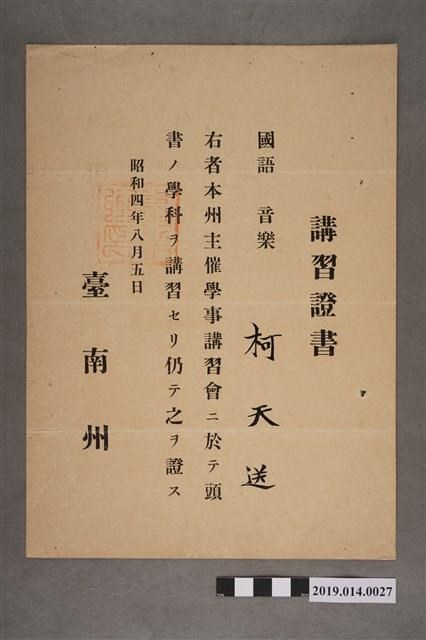 講習證書
國語 音樂
柯天送
右者本州主催學事講習會ニ於テ頭
書ノ學科ヲ講習セリ仍テ之ヲ證ス
昭和四年八月五日
臺南州
2019.014.0027